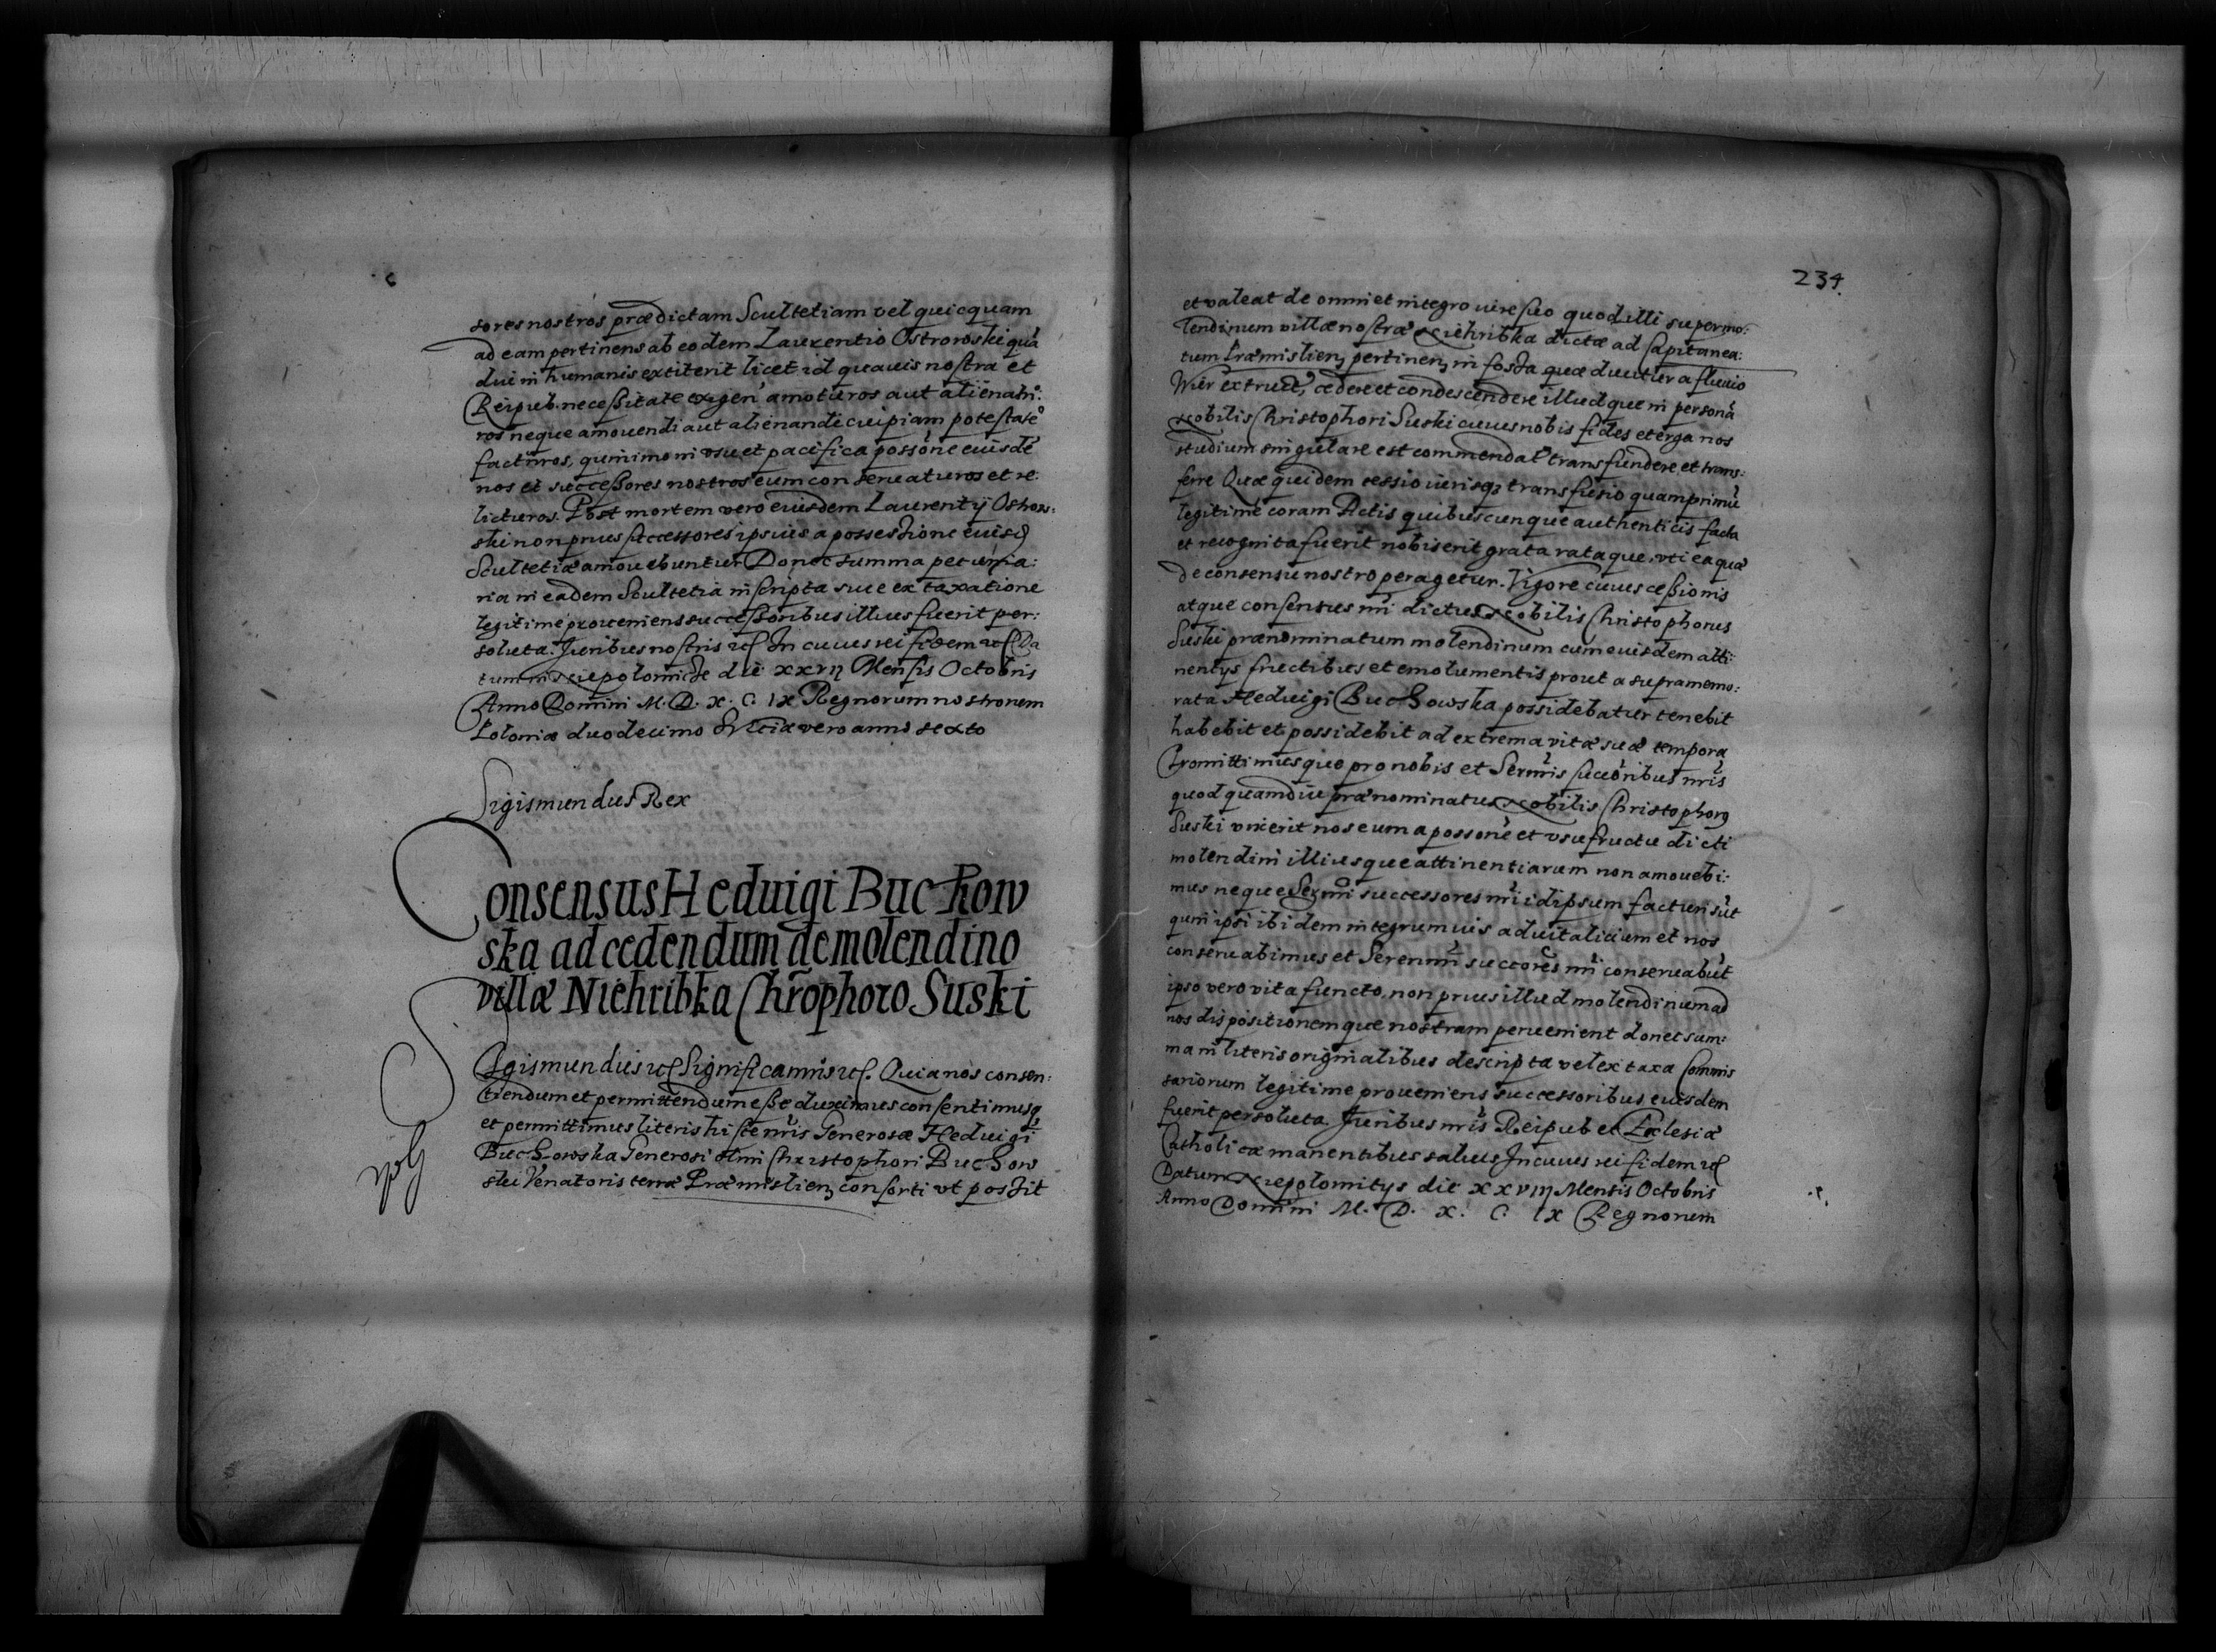 sores nostros prædictam Scultetiam vel quicquam
ad eam pertinens ab eodem Laurentio Ostroroski quã
diu in humanis extiterit licet id quauis nostra et
Reipub. necessitate exigen amoturos aut alienatu:
ros neque amouendi aut alienandi cuipiam potestatẽ
facturos, quinimo in vsu et pacifica possõne eiusdẽ
nos et successores nostros eum conseruaturos et re:
licturos. Post mortem vero eiusdem Laurentij Ostroro:
ski non prius successores ipsius a possessione eiusd
Scultetiæ amouebuntur Donec summa pecunia:
ria in eadem Scultetia inscripta siue ex taxatione
legitime proueniens successoribus illius fuerit per:
soluta. Iuribus nostris etc In cuius rei fidem etc Da
tum Niepolomiciæ die xxvij Mensis Octobris
Anno Domini M. D. X. C. IX Regnorum nostrorum
Poloniæ duodecimo Sueciæ vero anno sexto
Sigismundus Rex
Consensus Heduigi Buchow
ska ad cedendum de molendino
villæ Niehribka Chrõphoro Suski
Sigismundus etc Significamus etc. Quia nos consen:
tiendum et permittendum esse duximus consentimusq
et permittimus literis hisce nr̃is Generosæ Heduigi
Buchowska Generosi olim Christophori Buchow
ski Venatoris terræ Præmislien consorti vt possit
234.
et valeat de omni et integro iure suo quod illi super mo:
lendinum villæ nostræ Niehribka dictæ ad Capitanea:
tum Præmislien pertinen in fossa quæ ducitur a fluuio
Wier extruct, cedere et condescendere illudque in personã
Nobilis Christophori Suski cuius nobis fides et erga nos
studium singulare est commendat transfundere et trans:
ferre Quæ quidem cessio iurisq transfusio quamprimũ
legitime coram Actis quibuscunque authenticis facta
et recognita fuerit nobis erit grata rataque, vti ea quæ
de consensu nostro peragetur. Vigore cuius cessionis
atque consensus nr̃i dictus Nobilis Christophorus
Suski prænominatum molendinum cum eiusdem atti:
nentijs fructibus et emolumentis prout a supramemo:
rata Heduigi Buchowska possidebatur tenebit
habebit et possidebit ad extrema vitæ suæ tempora
Promittimusque pro nobis et Sermis succõribus nr̃is
quod quamdiu prænominatus Nobilis Christophorg
Suski vixerit nos eum a possõne et vsufructu dicti
molendini illiusque attinentiarum non amouebi:
mus neque Sermi successores nr̃i idipsum facturi sũt
quin ipsi ibidem integrum ius aduitalicium et nos
conseruabimus et Serenmi succõres nr̃i conseruabũt
ipso vero vita functo, non prius illud molendinum ad
nos dispositionemque nostram peruenient donec sum:
ma in literis originalibus descripta vel ex taxa Commis
sariorum legitime proueniens successoribus eiusdem
fuerit persoluta. Iuribus nr̃is Reipub et Ecclesiæ
Catholicæ manentibus saluis, In cuius rei fidem etc
Datum Niepolomitijs die xxviij Mensis Octobris
Anno Domini M. D. X. C. IX Regnorum